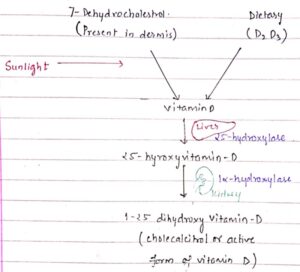 7-Dehydrocholestrol. Dietary
(Present in dermis) (D2 D3)
Sunlight
Vitamin D
Liver
25-hydroxylase
25-hyroxyvitamin-D
1α-hydroxylase
Kidney
1-25 dihydroxy Vitamin-D
(cholecalcitrol or active
form of vitamin D)